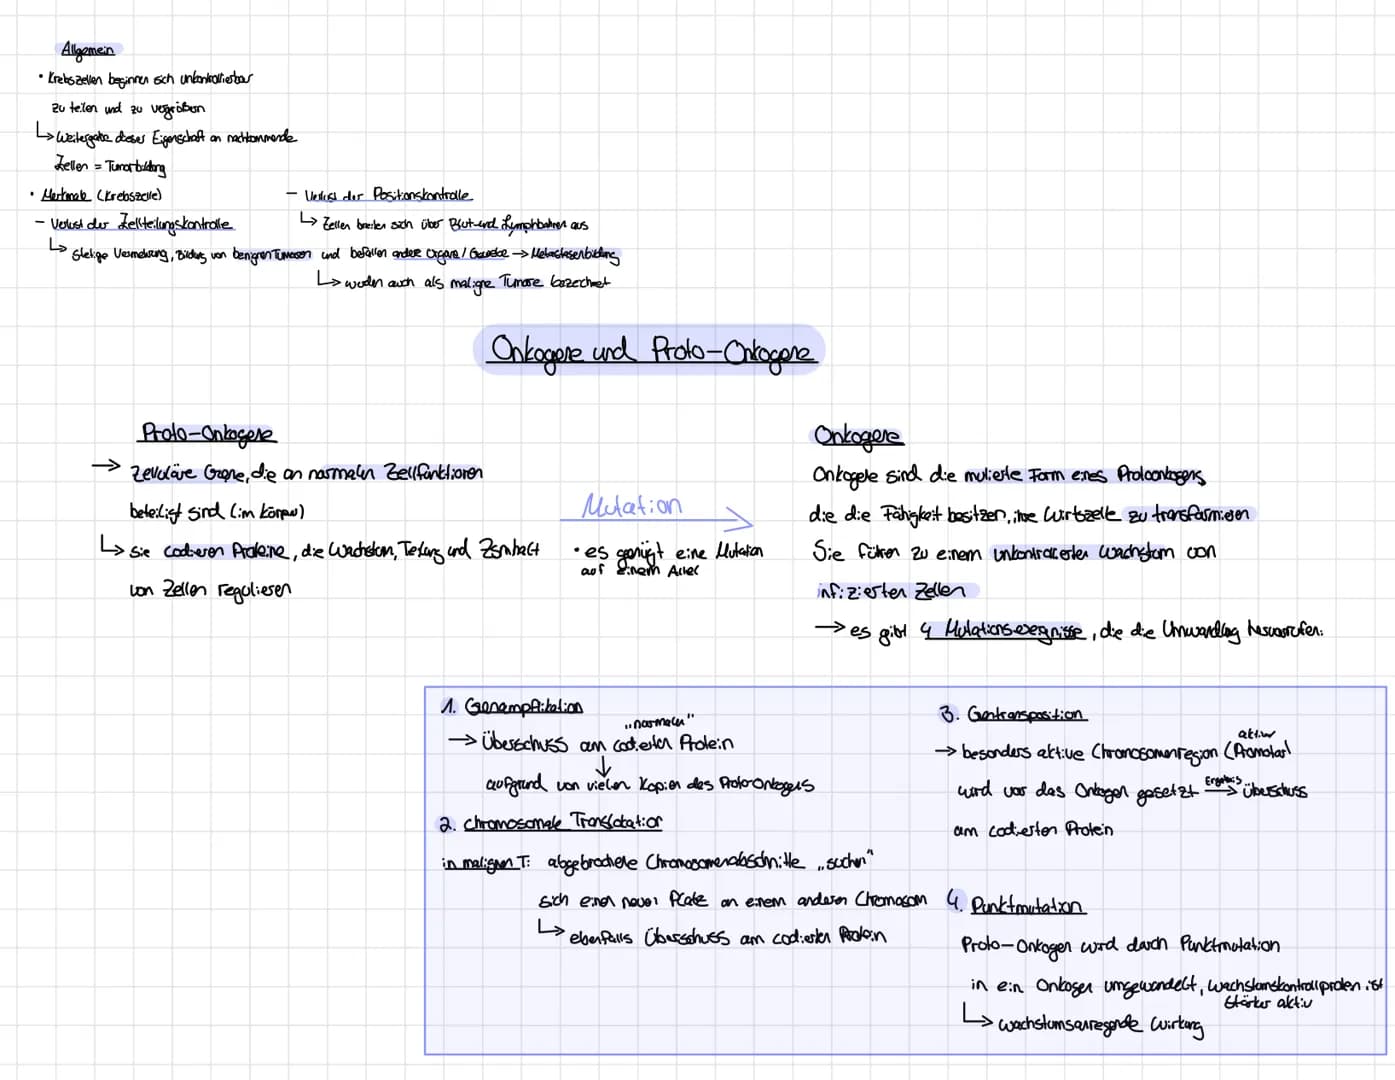 Allgemein
• Krebszellen beginnen sich unkontrollierbar
zu teilen und zu vergrößern
↳ Weitergabe dieser Eigenschaft an nachkommende
Zellen = Tumorbildung
• Merkmale (Krebszelle)
- Verlust der Zellteilungskontrolle
↳ stetige Vermehrung, Bildung von benignen Tumoren
- Verlust der Positionskontrolle
↳ Zellen breiten sich über Blut- und Lymphbahnen aus
und befallen andere Organe / Gewebe → Metastasenbildung
↳ werden auch als maligne Tumore bezeichnet
Onkogene und Proto-Onkogene
Proto-Onkogene
→ Zelluläre Gene, die an normalen Zellfunktionen
beteiligt sind (im Körper)
↳ Sie codieren Proteine, die Wachstum, Teilung und Zusammenhalt
von Zellen regulieren
Mutation
• es genügt eine Mutation
auf einem Allel
Onkogene
Onkogene sind die mutierte Form eines Protoonkogens,
die die Fähigkeit besitzen, ihre Wirtszelle zu transformieren
Sie führen zu einem unkontrollierten Wachstum von
infizierten Zellen
→ es gibt 4 Mutationsereignisse, die die Umwandlung hervorrufen:
1. Genamplifikation
„normalen"
→ Überschuss am codierten Protein
↓
aufgrund von vielen Kopien des Proto-Onkogens
2. Chromosomale Translokation
in malignen T: abgebrochene Chromosomenabschnitte „suchen"
sich einen neuen Platz an einem anderen Chromosom
↳ ebenfalls Überschuss am codierten Protein
3. Gentransposition
aktiv
→ besonders aktive Chromosomenregion (Promotor)
wird vor das Onkogen gesetzt Ergebnis→ Überschuss
am codierten Protein
4. Punktmutation
Proto-Onkogen wird durch Punktmutation
in ein Onkogen umgewandelt, Wachstumskontrollprotein ist
stärker aktiv
↳ wachstumsanregende Wirkung